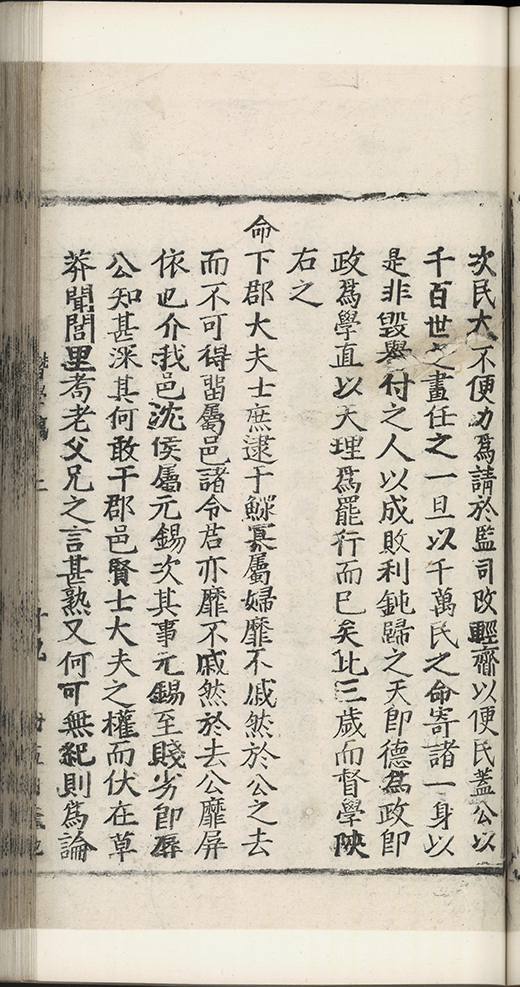 次民大不便力為請於監司改輕齎以便民蓋公以
千百世之畫任之一旦以千萬民之命寄諸一身以
是非毀譽付之人以成敗利鈍歸之天即德為政即
政為學直以天理為罷行而已矣比三歲而督學陝
右之
命下郡大夫士庶逮于鰥寡屬婦靡不戚然於公之去
而不可得畱屬邑諸令君亦靡不戚然於去公靡屏
依也介我邑沈侯屬元錫次其事元錫至賤劣即辱
公知甚深其何敢干郡邑賢士大夫之權而伏在草
莽聞閭里耆老父兄之言甚熟又何可無紀則為論